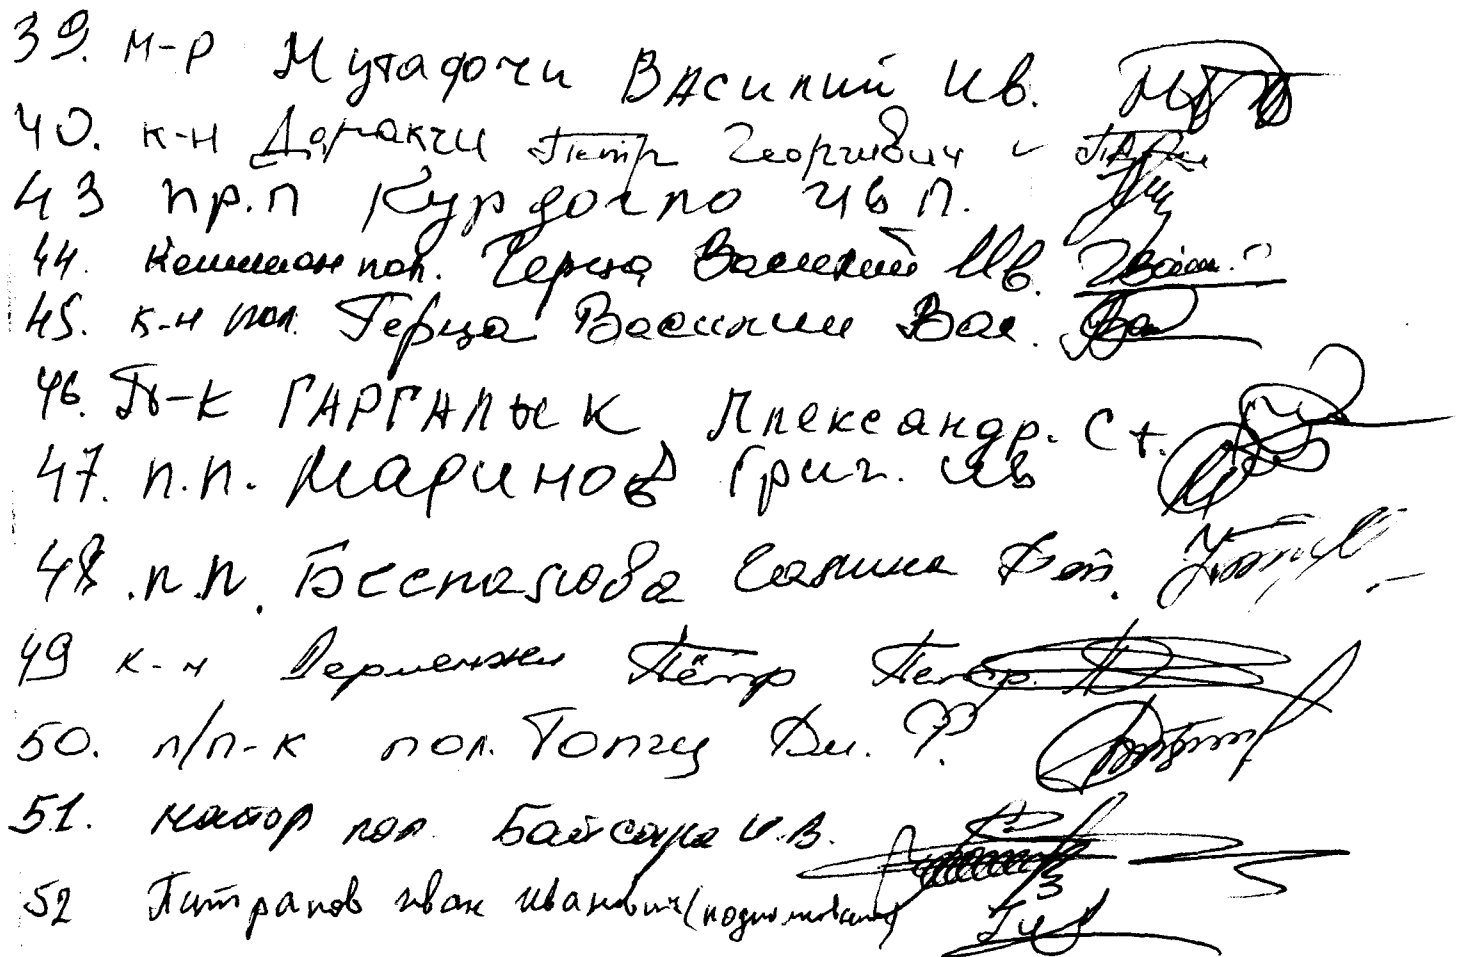 39. м-р Мутафчи Василий Ив.
40. к-н Даракчи Петр Георгиевич
43 пр.п Курдогло Ив П.
44. Капитан пол. Герца Василий Ив.
45. к-н пол. Герца Василий Вас.
46. П-к ГАРГАЛЫК Александр. Ст.
47. п.п. Маринов Григ. Ив
48 .п.п. Беспалова Галина
49 к-н Дерменжи Пётр Петр.
50. п/п-к пол. Топчу Дм. Ф.
51. майор пол. И.В.
52 Иван Иванович (подполковник)